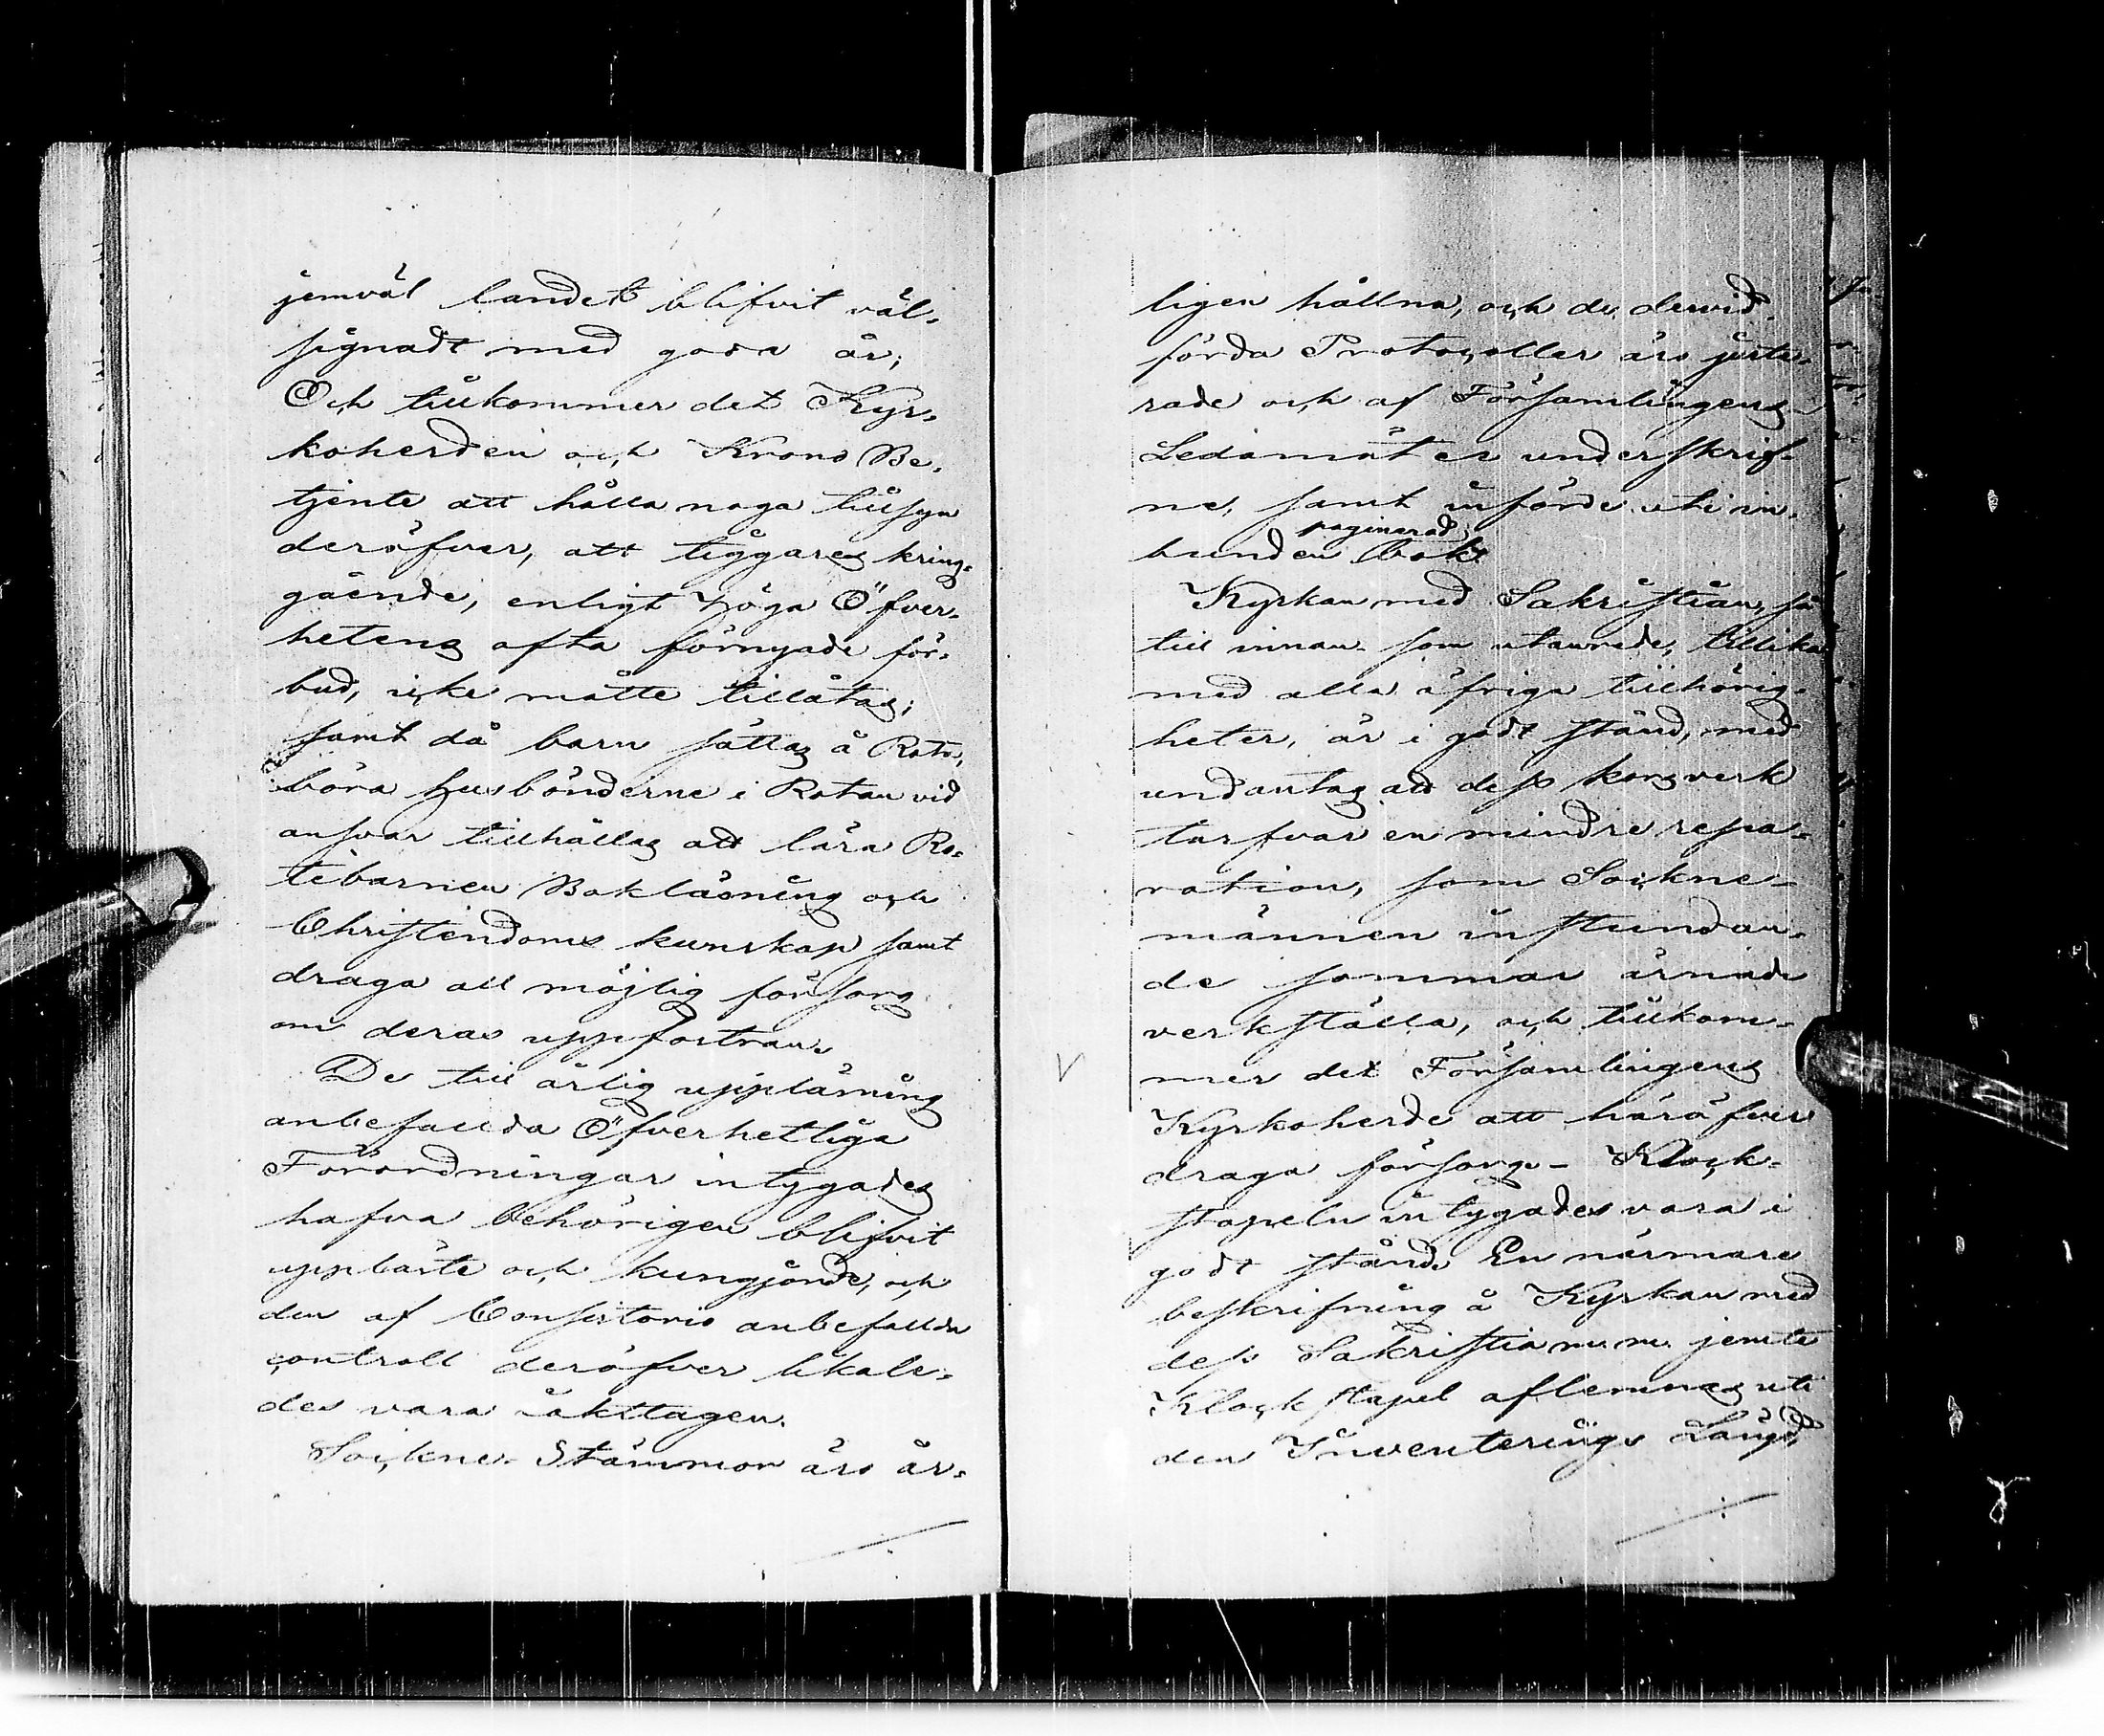 jemväl landet blifvit väl-
signadt med goda år;
Och tillkommer det Kyr-
koherden och Krono Be-
tjente att hålla noga tillsyn
deröfver, att tiggares kring-
gående, enligt höga Öfver-
hetens ofta förnyade för-
bud, icke måtte tillåtas;
samt då barn sättas å Rote,
böra husbönderne i Rotan vid
ansvar tillhållas att lära Ro-
tebarnen Bokläsning och
Christendoms kunskap samt
draga all möjlig försorg
om deras uppfostran.
De till årlig uppläsning
anbefallda Öfverhetliga
Förordningar intygades
hafva behörigen blifvit
uppläste och kungjorde, och
den af Consistorio anbefallda
controll deröfver likale-
des vara iakttagen.
Sockne-Stämmor äro år-
ligen hållna, och de dervid
förda Protocoller äro juste-
rade och af Församlingens
Ledamöter underskrif-
ne, samt införde uti in-
paginerad
bunden bok.
Kyrkan med Sakristian, så
till innan- som utanrede, tillika
med alla öfriga tillhörig-
heter, är i godt stånd, med
undantag att dess korsverk
tarfvar en mindre repa-
ration, som Sockne-
männen instundan-
de sommar ärnade
verkställa, och tillkom-
mer det Församlingens
Kyrkoherde att häröfver
draga försorg - Klock-
stapeln intygades vara i
godt stånd. En närmare
beskrifning å Kyrkan med
dess Sakristia m.m. jemte
Klockstapel aflemnas uti
den Inventerings Längd,